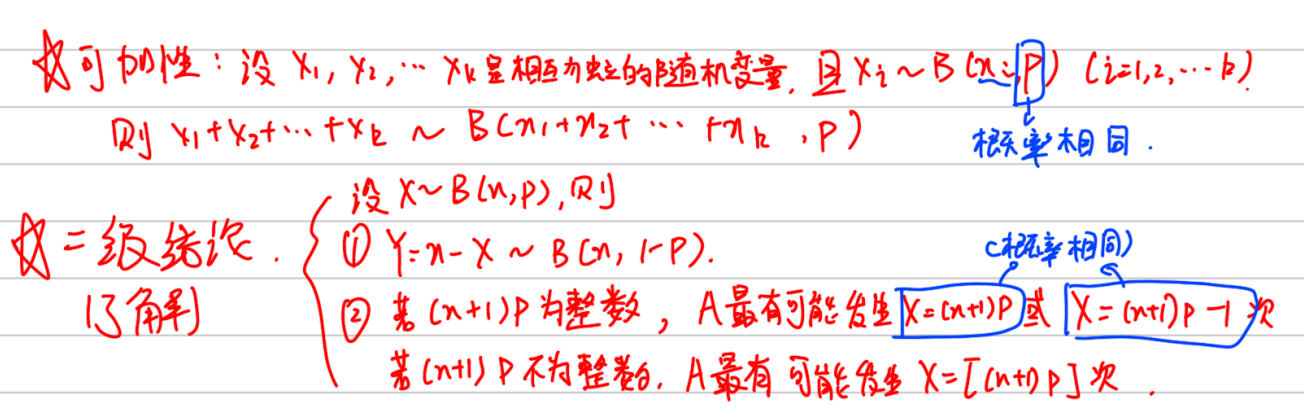 ☆可加性：设 X₁, X₂, … Xₖ 是相互独立的随机变量, 且 Xᵢ ~ B(nᵢ, P) (i=1,2,…k).
则 X₁+X₂+…+Xₖ ~ B(n₁+n₂+ … +nₖ , P)
概率相同.
☆二级结论.
(了解)
设 X~B(n,p), 则
① Y=n-X ~ B(n, 1-P).
(概率相同)
② 若 (n+1)P 为整数, A最有可能发生 X=(n+1)P 或 X=(n+1)P-1 次
若(n+1)P不为整数, A最有可能发生 X=[(n+1)P]次.